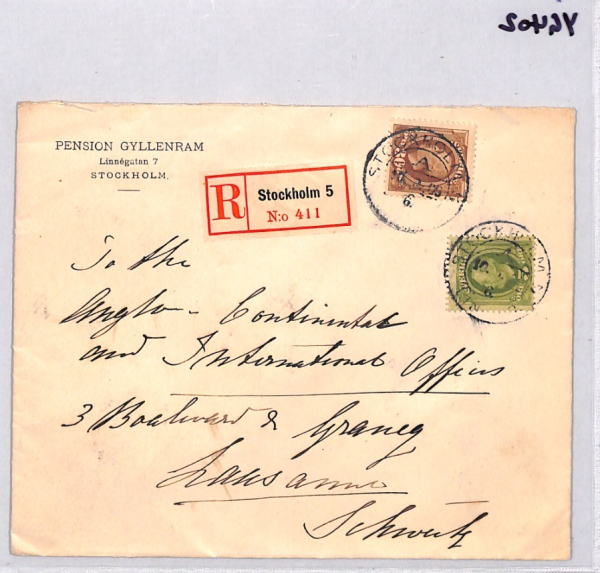 PENSION GYLLENRAM
Linnégatan 7
STOCKHOLM.
R
Stockholm 5
N:o 411
STOCKHOLM
STOCKHOLM
To the
Anglo-Continental
and International Offices
3 Boulevard de Grancy
Lausanne
Schweiz